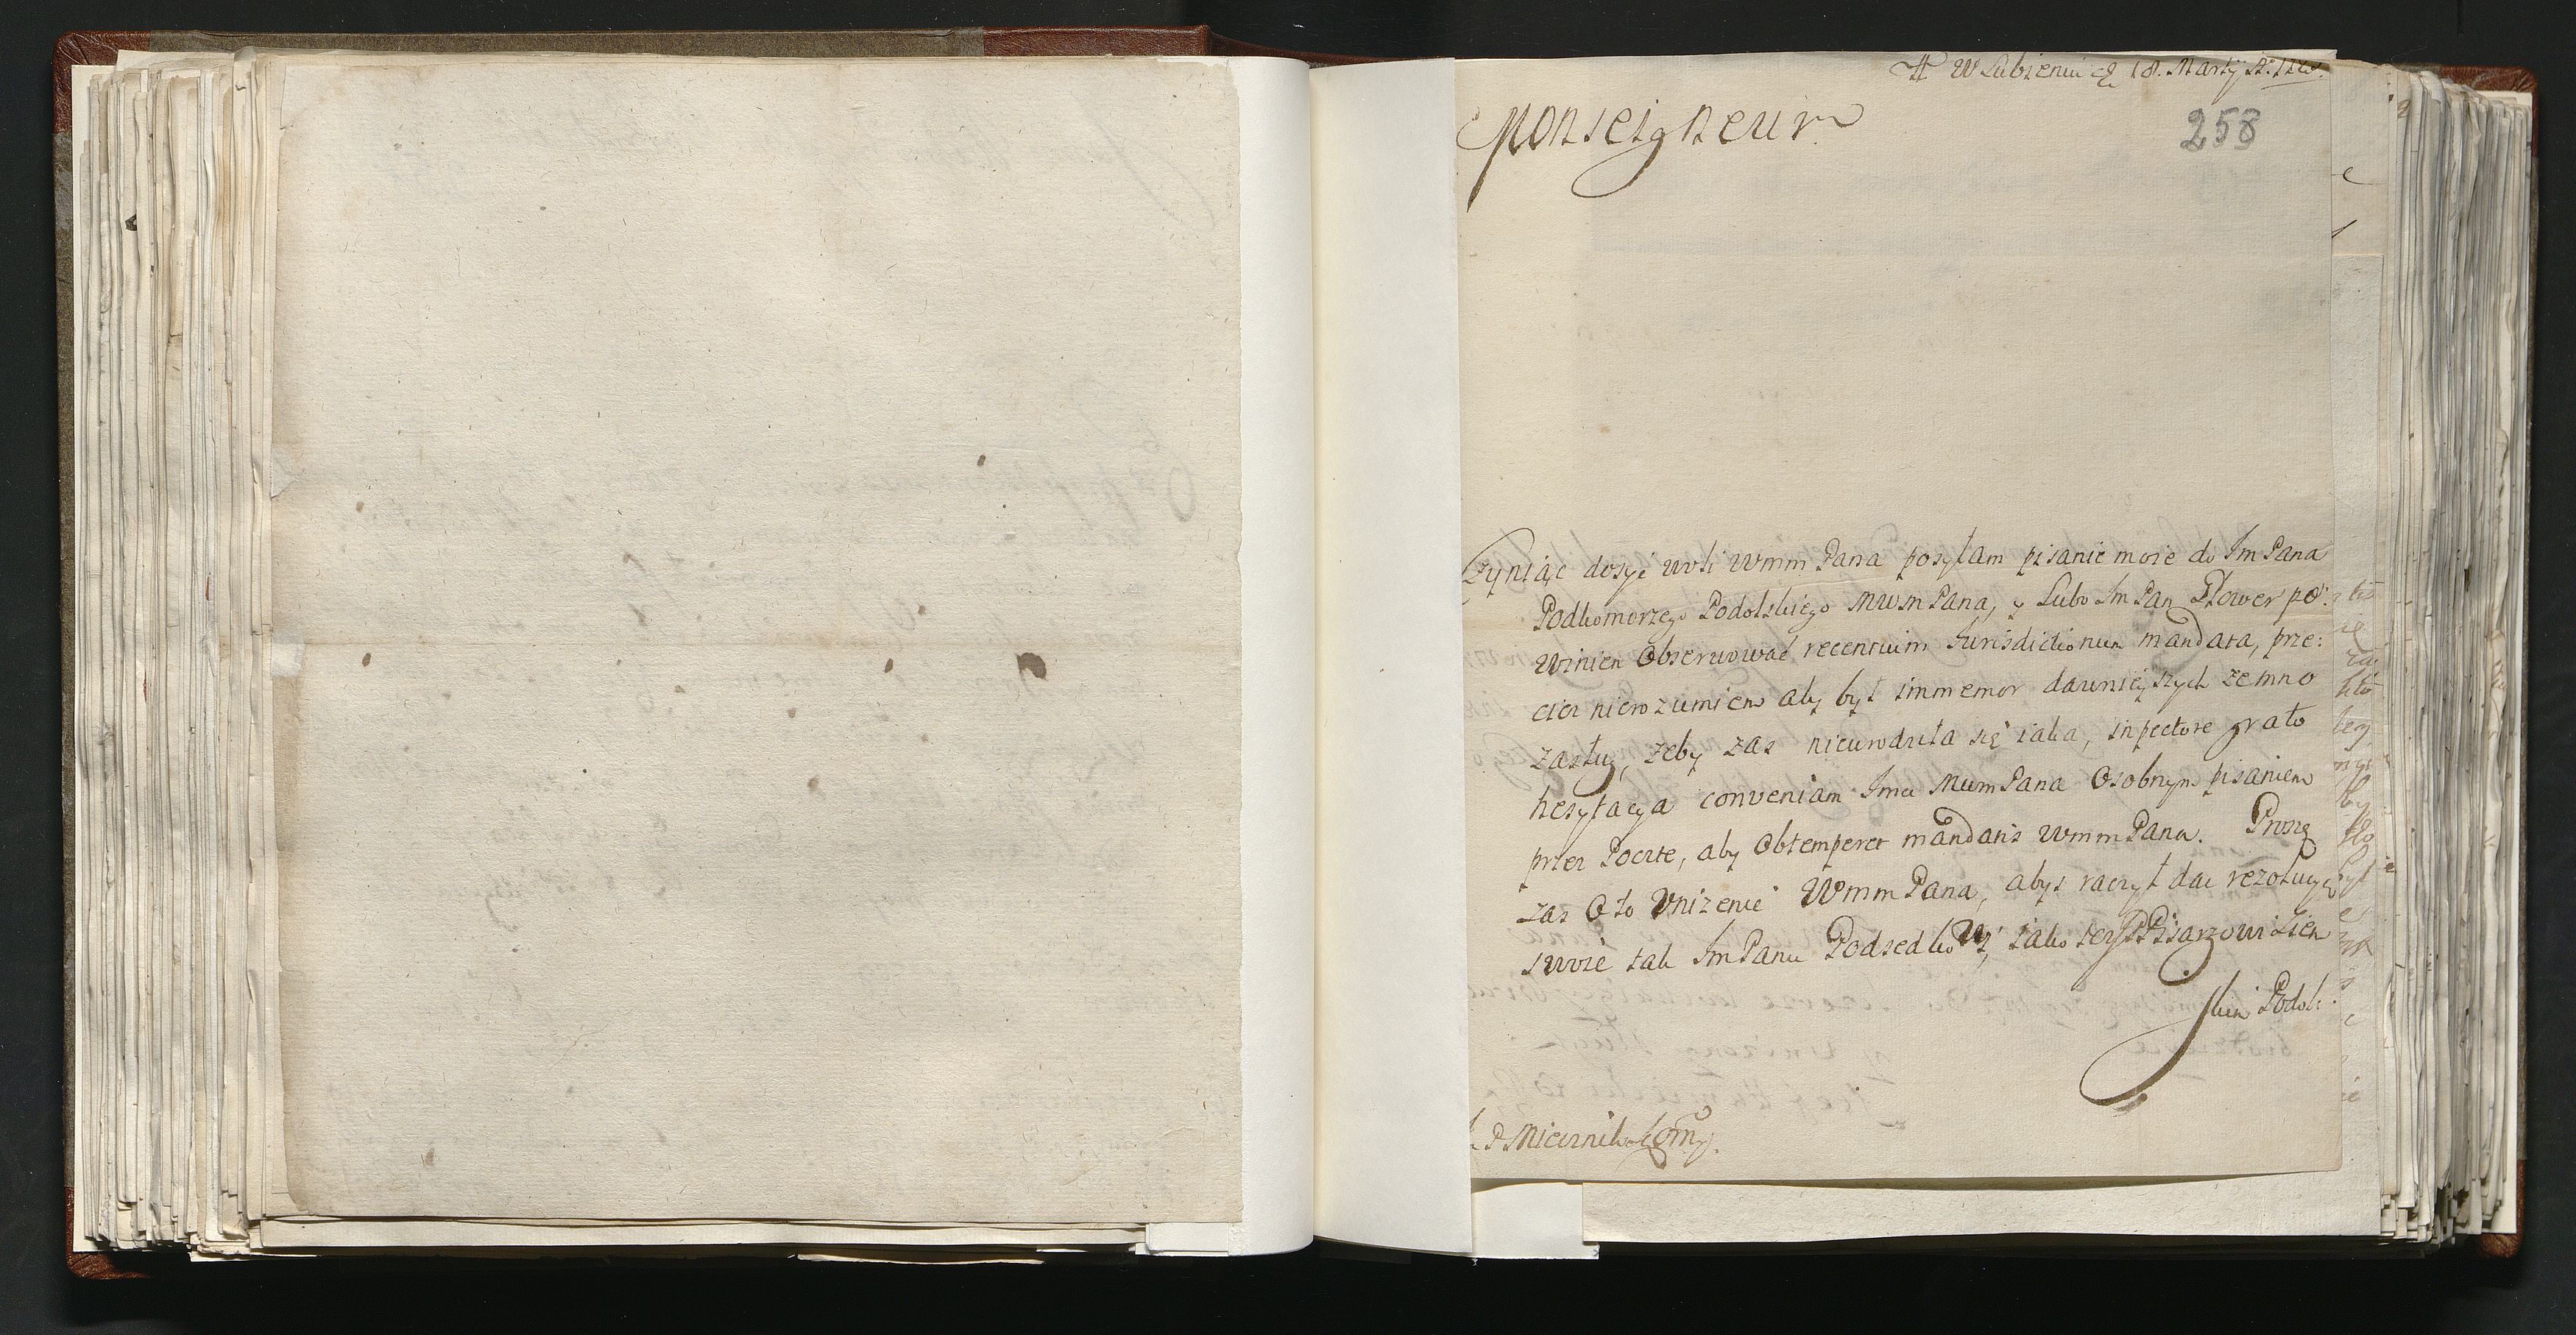 W Lubieniu d 18. Martij A. 
258
Monseigneur
Czyniąc dosyć woli WmmPana posyłam pisanie moie do ImPana
Podkomorzego Podolskiego MWmPana, y Lubo ImPan Plower po:
winien Obserwować recentium Iurisdictionum mandata, prze:
ciez nierozumiem aby był immemor dawnieyszych zemno
zasług, zeby zas nieurodziła się iaka, in pectore grato
hesytacya conveniam Imci MwmPana Osobnym pisaniem
przez Pocztę, aby Obtemperet mandatis WmmPana. Proszę
zas O to Vnizenie WmmPana, abys raczył dac rezolucyą
swoie tak ImPanu Podsedkowi, iako tez Pisarzowi Ziem
skim Podol:
P Miecznik